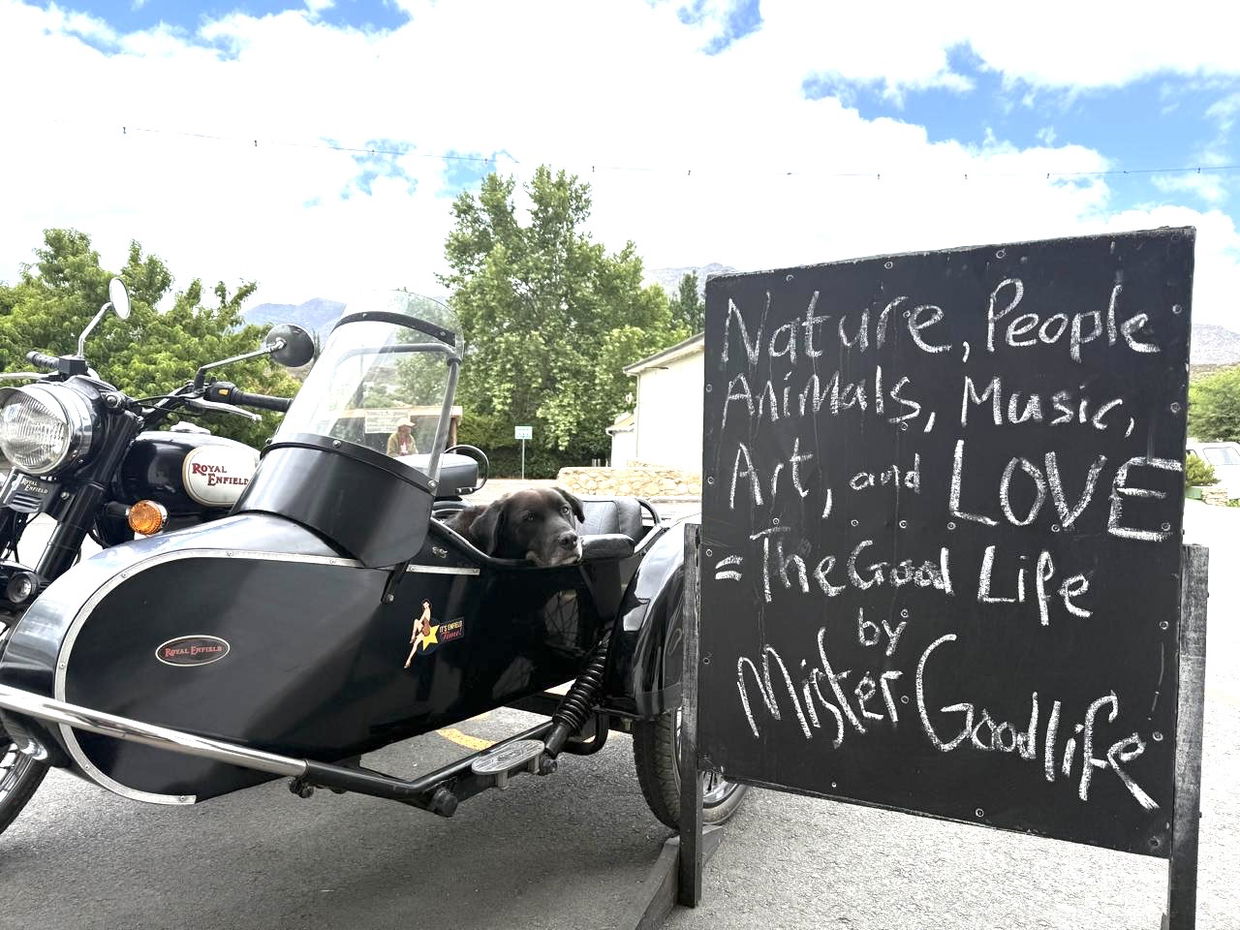 Nature, People
Animals, Music,
Art, and LOVE
= The Good Life
by
Mister Goodlife
ROYAL
ENFIELD
ROYAL
ENFIELD
ROYAL ENFIELD
IT'S ENFIELD
Time!